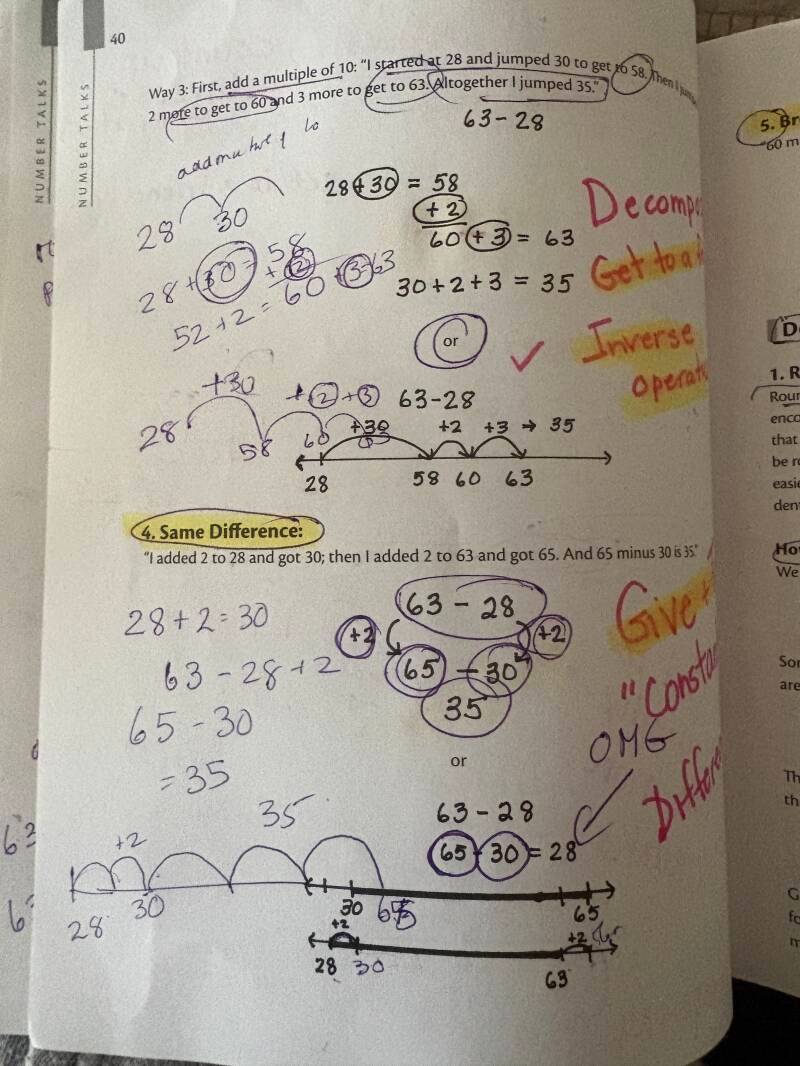 40
NUMBER TALKS
NUMBER TALKS
Way 3: First, add a multiple of 10: "I started at 28 and jumped 30 to get to 58. Then I
2 more to get to 60 and 3 more to get to 63. Altogether I jumped 35."
63 - 28
28 30
28 + 30 = 58
+ 2
60 + 3 = 63
30 + 2 + 3 = 35
28 + 30 = 58
+ 2
60 + 3 = 63
52 + 2 =
or
Decomp
Get to a
Inverse
operat
+30 +2 +3
28 58 60 63
63 - 28
+30 +2 +3 → 35
28 58 60 63
4. Same Difference:
"I added 2 to 28 and got 30; then I added 2 to 63 and got 65. And 65 minus 30 is 35."
28 + 2 = 30
63 - 28 + 2
65 - 30
= 35
63 - 28
+2 +2
65 - 30
35
or
Give +
"Consta
Differe
OMG
63 - 28
65 - 30 = 28
35
+2
28 30 65
30 65
+2 +2
28 30 63
63
6
5. Br
"60 m
1. R
Roun
enco
that
be r
easie
den
Ho
We
Sor
are
Th
th
G
fo
m